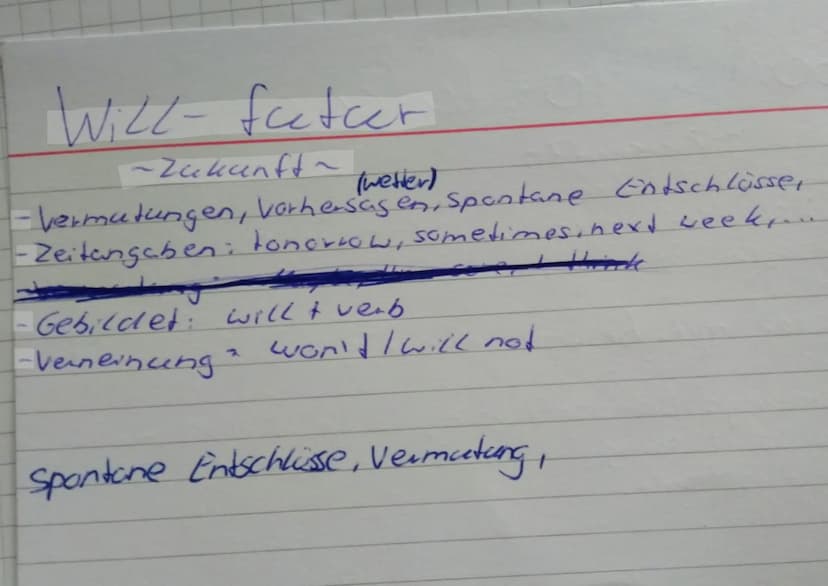 Will- futur
~Zukunft~
(wetter)
-Vermutungen, Vorhersagen, spontane Entschlüsse,
-Zeitangaben: tomorrow, sometimes, next week,...
think
-Gebildet: will + verb
-Verneinung: won't / will not
Spontane Entschlüsse, Vermutung,